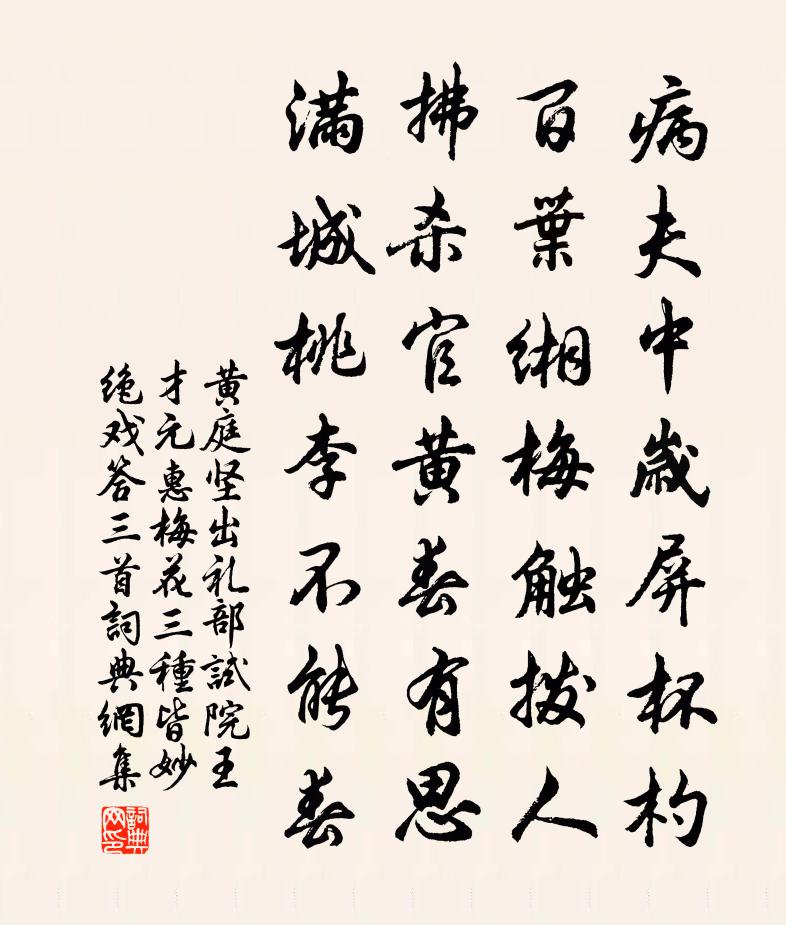 病夫中歲屏杯杓
百葉緗梅觸撥人
拂杀官黄春有思
满城桃李不能春
黄庭坚出礼部試院王
才元惠梅花三種皆妙
绝戏答三首詞典網集
詞典网印